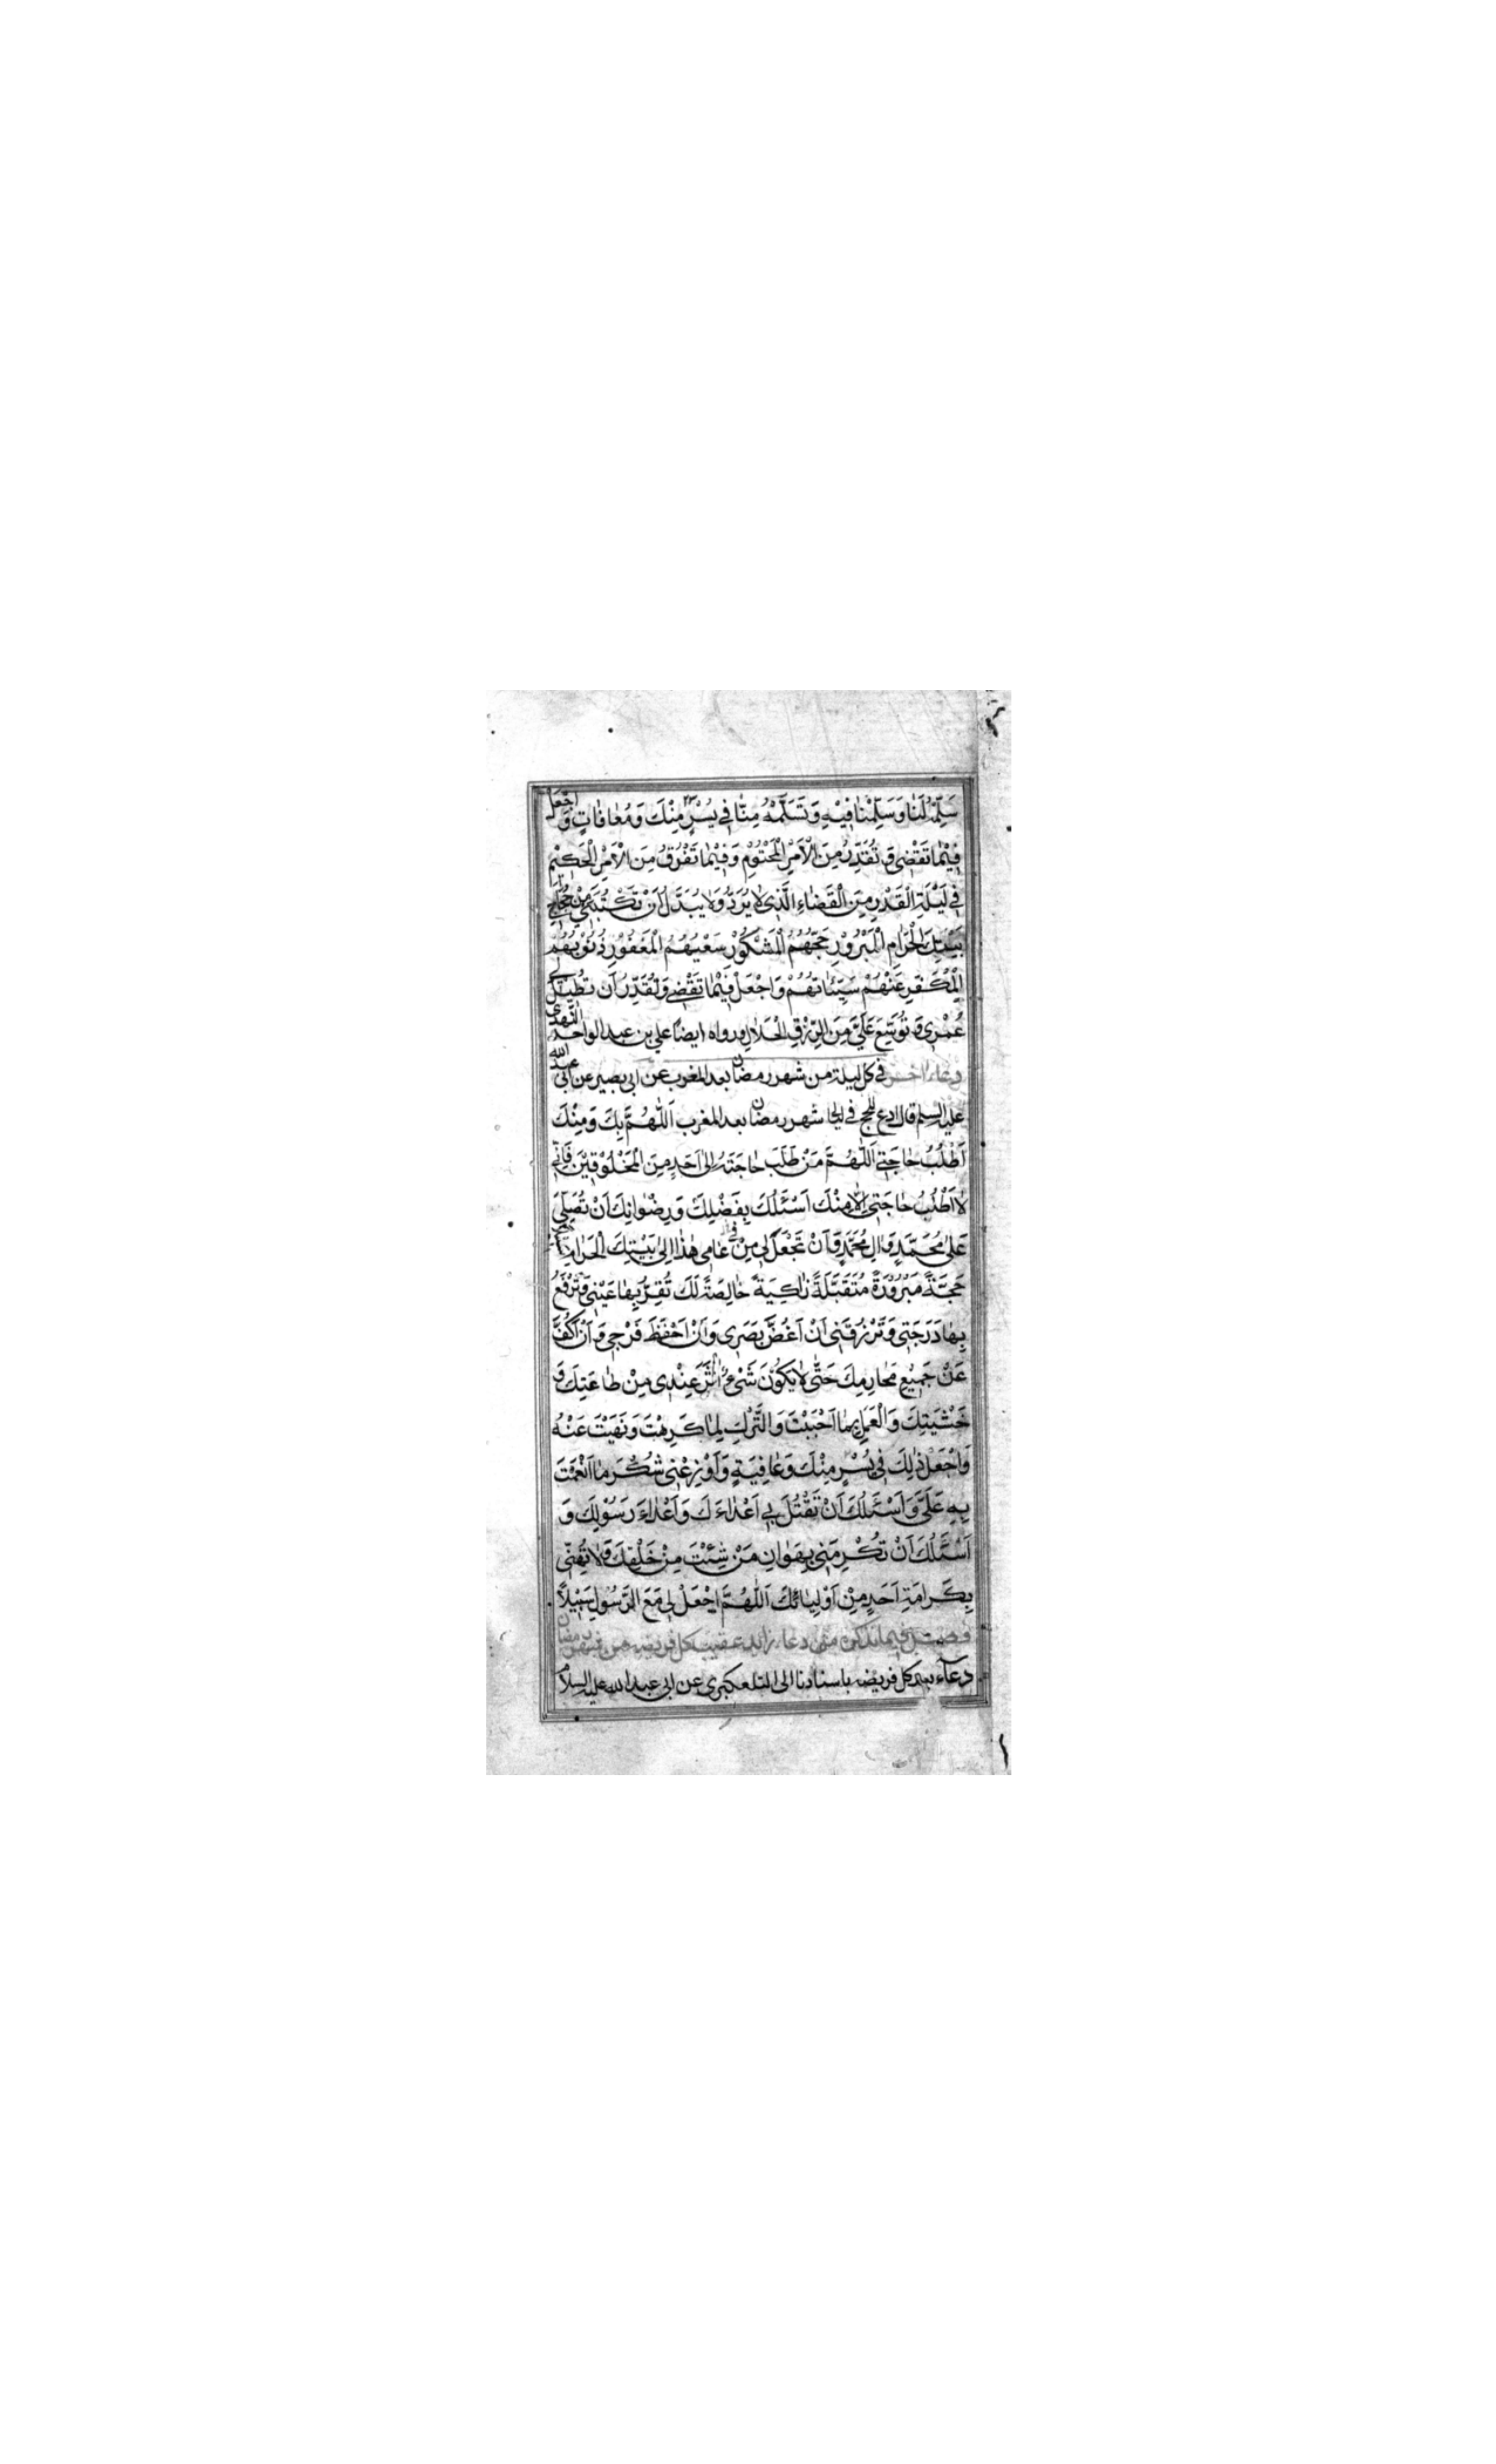 سَلِّمْهُ لَنَا وَسَلِّمْنَا فِيْهِ وَتَسَلَّمْهُ مِنَّا فِي يُسْرٍ مِنْكَ وَمُعَافَاتٍ وَاجْعَلْ
فِيْمَا تَقْضِي وَتُقَدِّرُ مِنَ الْاَمْرِ الْمَحْتُوْمِ وَفِيْمَا تَفْرُقُ مِنَ الْاَمْرِ الْحَكِيْمِ
فِي لَيْلَةِ الْقَدْرِ مِنَ الْقَضَاءِ الَّذِي لَا يُرَدُّ وَلَا يُبَدَّلُ اَنْ تَكْتُبَنِي مِنْ حُجَّاجِ
بَيْتِكَ الْحَرَامِ الْمَبْرُوْرِ حَجُّهُمُ الْمَشْكُوْرِ سَعْيُهُمُ الْمَغْفُوْرِ ذُنُوْبُهُمُ
الْمُكَفَّرِ عَنْهُمْ سَيِّئَاتُهُمْ وَاجْعَلْ فِيْمَا تَقْضِي وَتُقَدِّرُ اَنْ تُطِيْلَ لِي
عُمْرِي وَتُوَسِّعَ عَلَيَّ مِنَ الرِّزْقِ الْحَلَالِ ورواه ايضاً علي بن عبد الواحد النهدي
دعاء اخر في كل ليلة من شهر رمضان بعد المغرب عن ابي بصير عن ابي عبد الله
عليه السلم قال ادع للحج في ليالي شهر رمضان بعد المغرب اَللّٰهُمَّ بِكَ وَمِنْكَ
اَطْلُبُ حَاجَتِي اَللّٰهُمَّ مَنْ طَلَبَ حَاجَتَهُ اِلَى اَحَدٍ مِنَ الْمَخْلُوْقِيْنَ فَاِنِّي
لَا اَطْلُبُ حَاجَتِي اِلَّا مِنْكَ اَسْئَلُكَ بِفَضْلِكَ وَرِضْوَانِكَ اَنْ تُصَلِّيَ
عَلَى مُحَمَّدٍ وَاٰلِ مُحَمَّدٍ وَاَنْ تَجْعَلَ لِي مِنْ فِي عَامِي هٰذَا اِلَى بَيْتِكَ الْحَرَامِ
حَجَّةً مَبْرُوْرَةً مُتَقَبَّلَةً زَاكِيَةً خَالِصَةً لَكَ تُقِرُّ بِهَا عَيْنِي وَتَرْفَعُ
بِهَا دَرَجَتِي وَتَرْزُقَنِي اَنْ اَغُضَّ بَصَرِي وَاَنْ اَحْفَظَ فَرْجِي وَاَنْ اَكُفَّ
عَنْ جَمِيْعِ مَحَارِمِكَ حَتّٰى لَا يَكُوْنَ شَيْءٌ اٰثَرَ عِنْدِي مِنْ طَاعَتِكَ وَ
خَشْيَتِكَ وَالْعَمَلِ بِمَا اَحْبَبْتَ وَالتَّرْكِ لِمَا كَرِهْتَ وَنَهَيْتَ عَنْهُ
وَاجْعَلْ ذٰلِكَ فِي يُسْرٍ مِنْكَ وَعَافِيَةٍ وَاَوْزِعْنِي شُكْرَ مَا اَنْعَمْتَ
بِهِ عَلَيَّ وَاَسْئَلُكَ اَنْ تَقْتُلَ بِي اَعْدَاءَكَ وَاَعْدَاءَ رَسُوْلِكَ وَ
اَسْئَلُكَ اَنْ تُكْرِمَنِي بِهَوَانِ مَنْ شِئْتَ مِنْ خَلْقِكَ وَلَا تُهِنِّي
بِكَرَامَةِ اَحَدٍ مِنْ اَوْلِيَائِكَ اَللّٰهُمَّ اجْعَلْ لِي مَعَ الرَّسُوْلِ سَبِيْلًا
فصل فيما نذكره من دعاء زائد عقيب كل فريضه من شهر رمضان
دعاء بعد كل فريضه باسنادنا الى التلعكبري عن ابي عبد الله عليه السلام